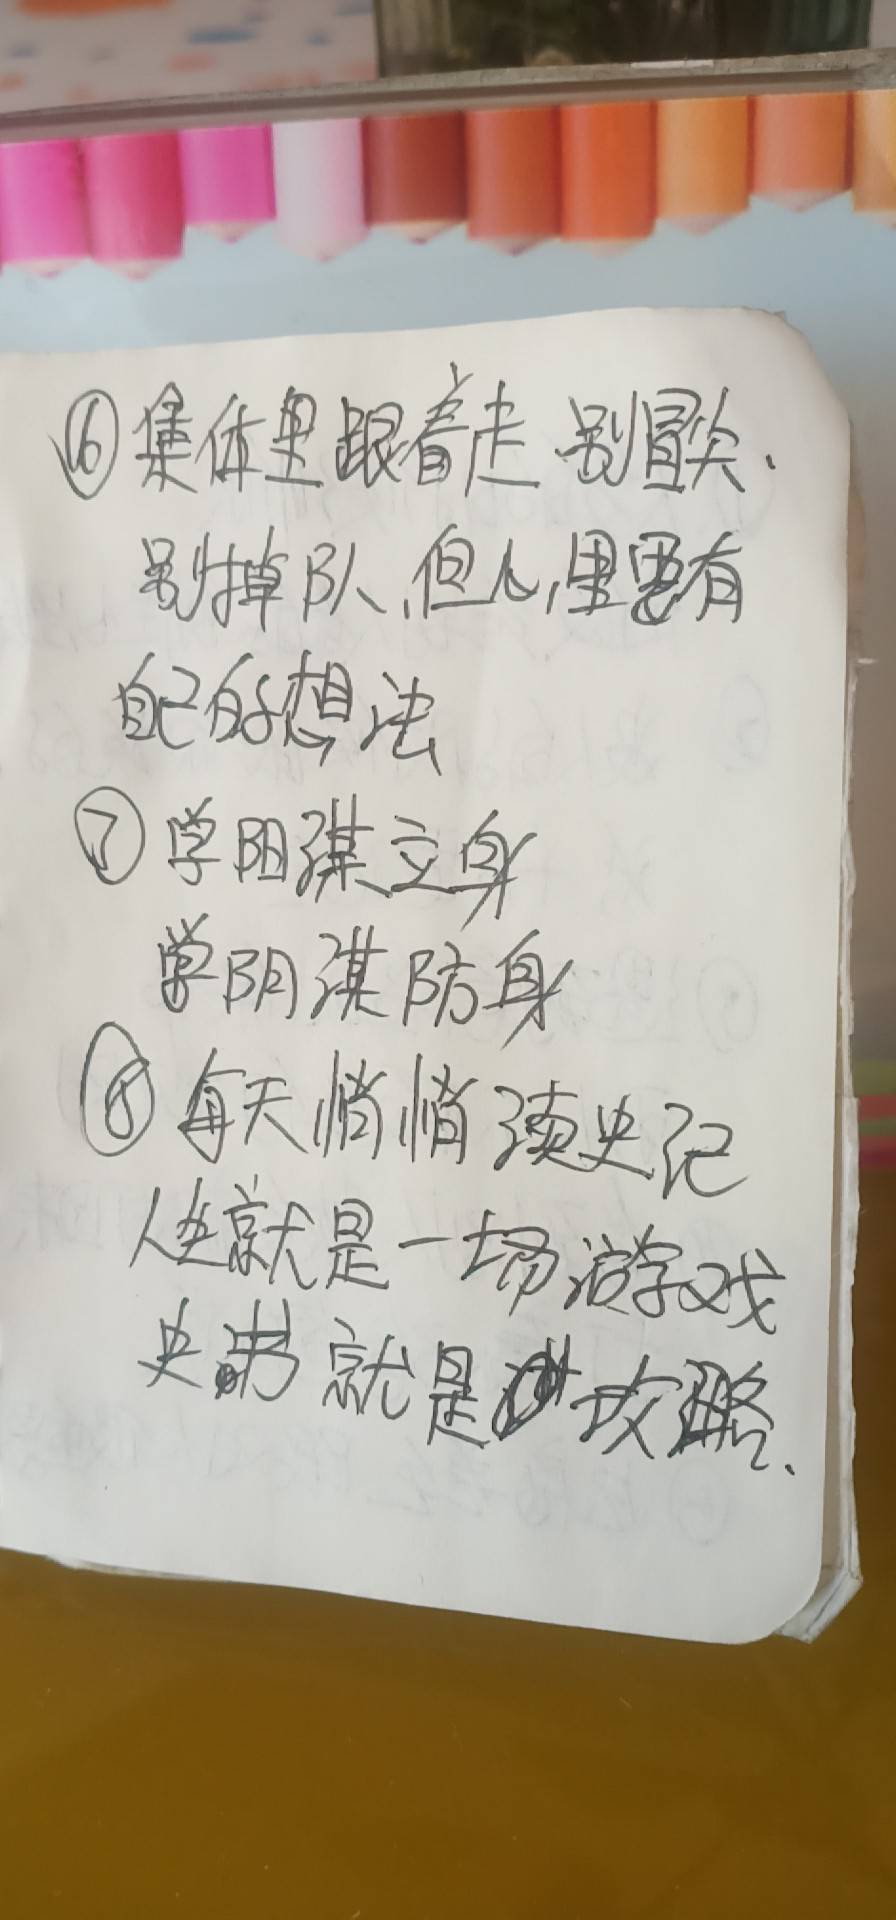 ⑥集体里跟着走 别冒尖.
别掉队,但心里要有
自己的想法
⑦学阳谋立身
学阴谋防身
⑧每天悄悄读史记
人生就是一场游戏
史书就是攻略.